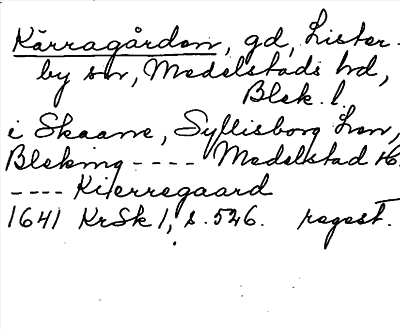 Kärragården, gd, Lister-
by sn, Medelstads hd,
Blek. l.
i Skaane, Syllisborg Len,
Bleking ---- Medelstad H.
---- Kierregaard
1641 KrSk 1, s. 526. regest.